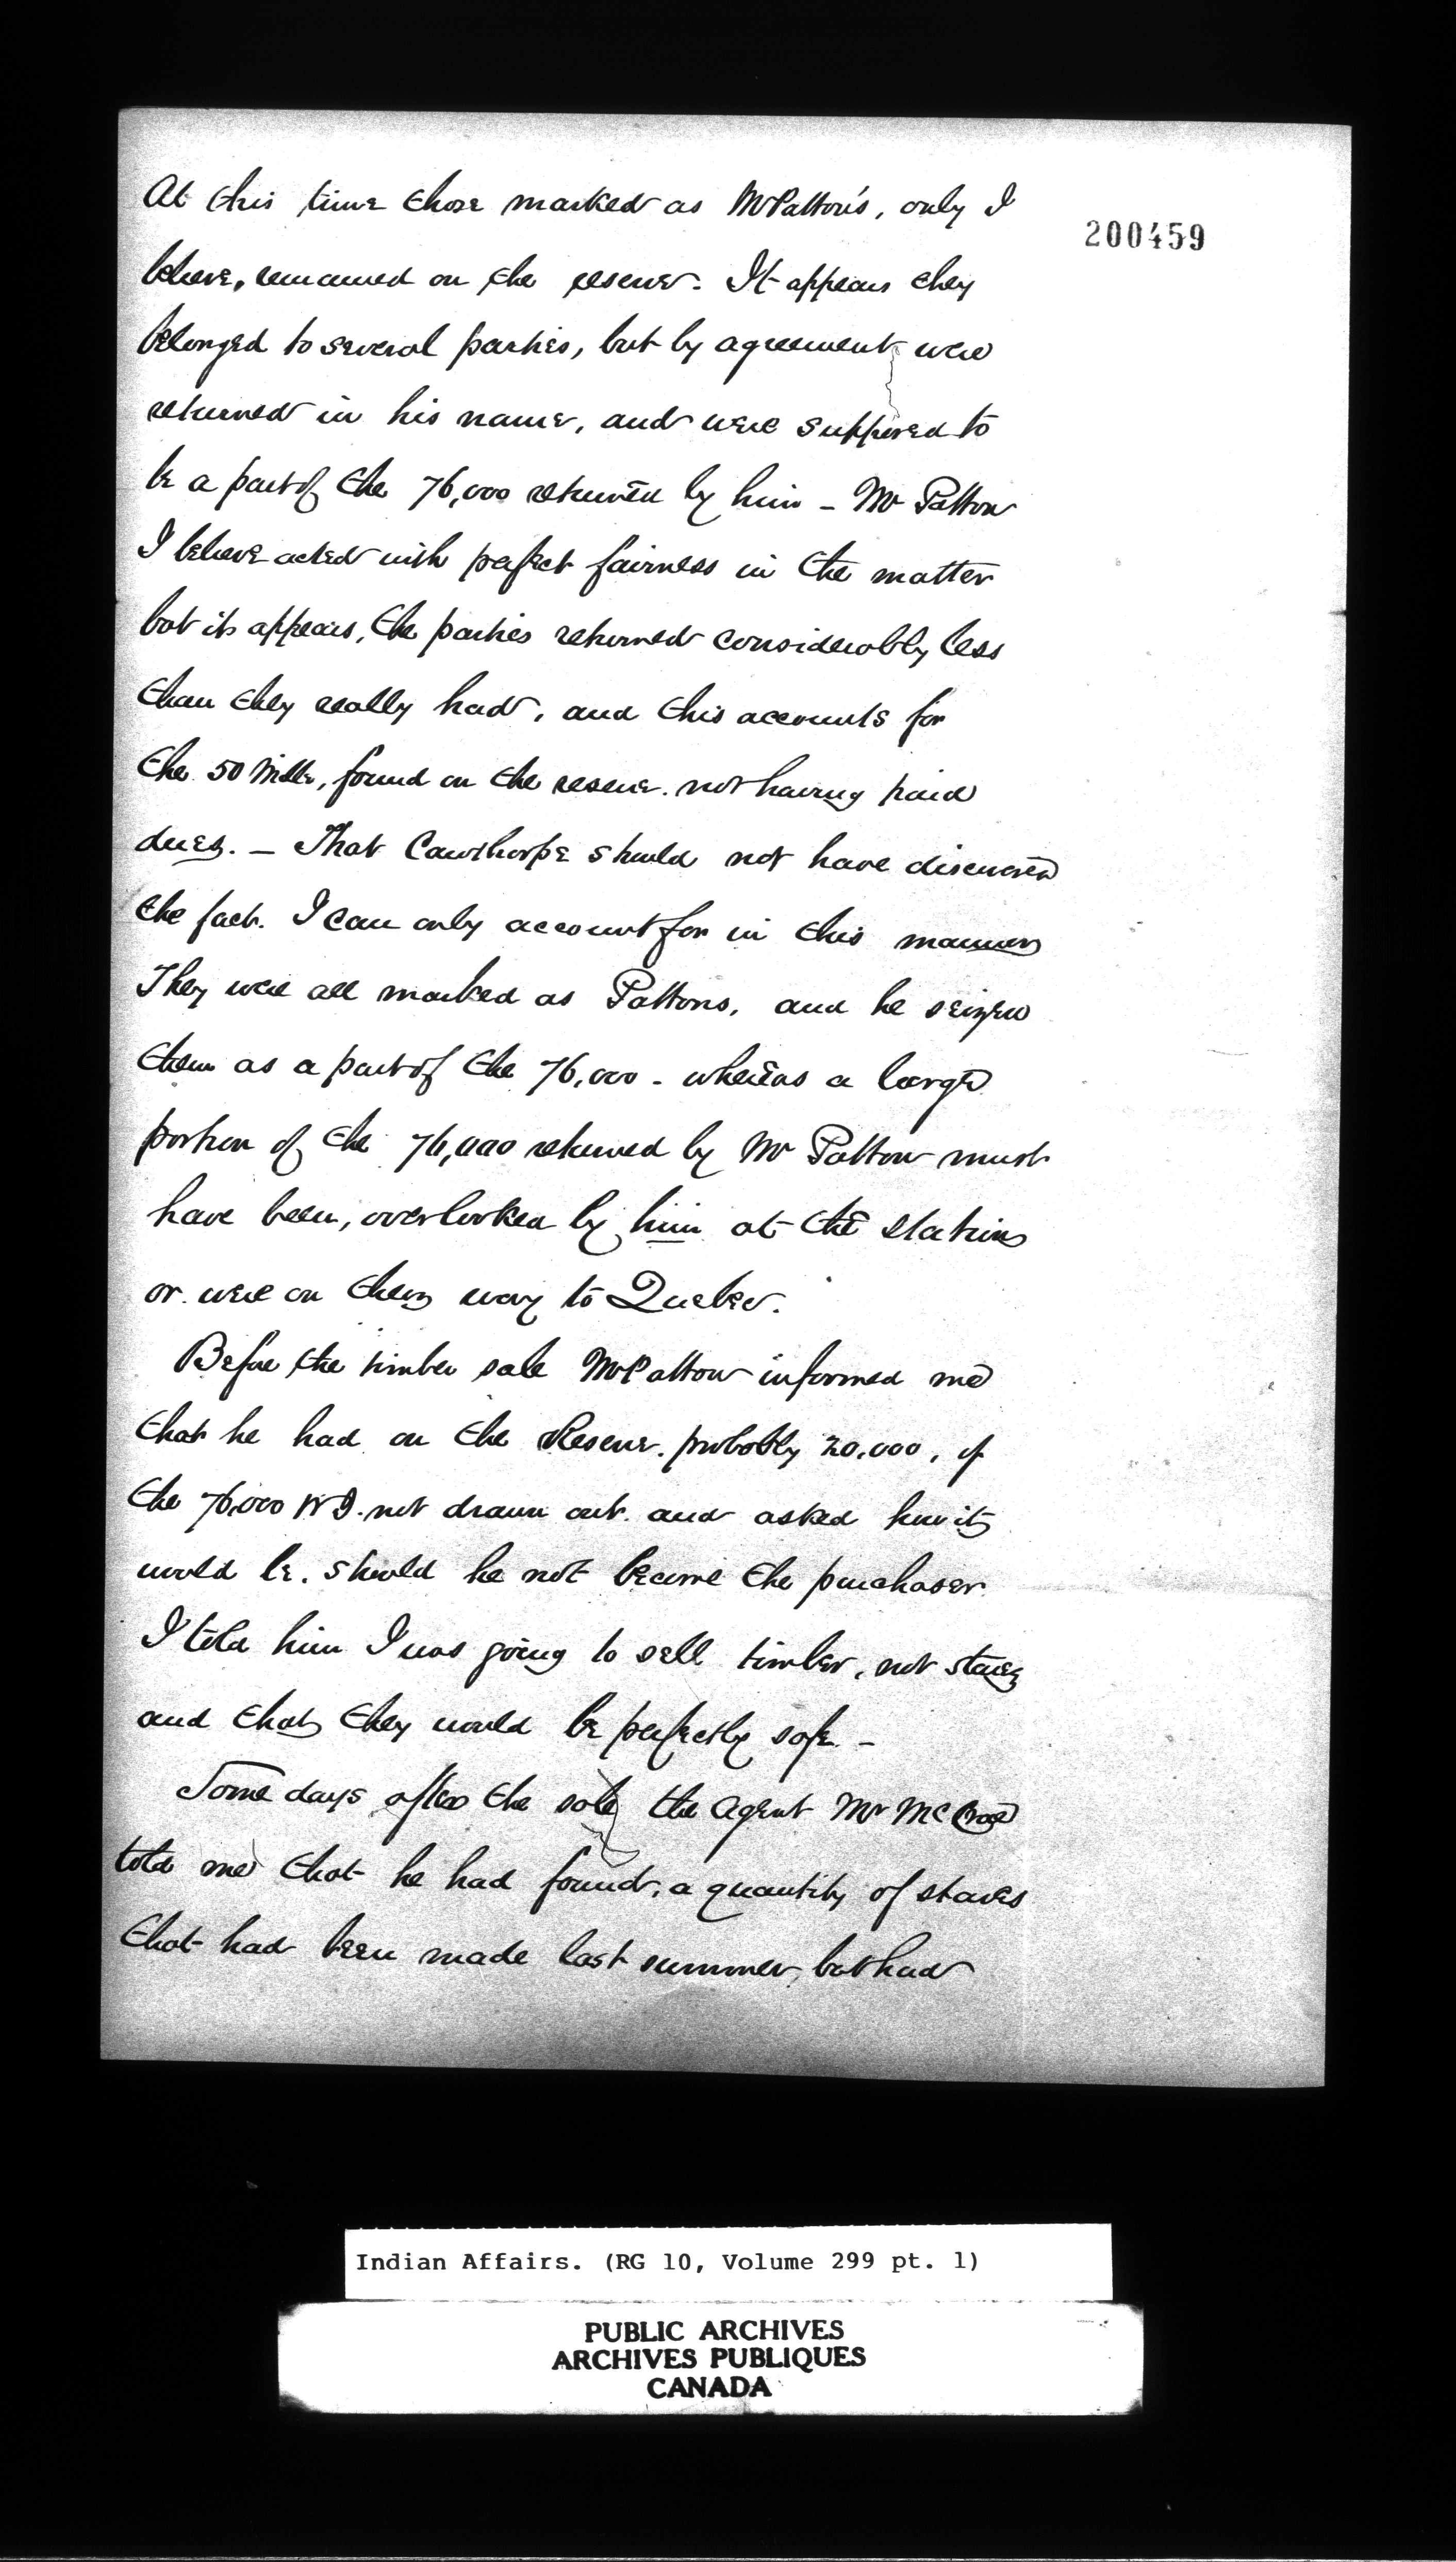 200459
At this time those marked as Mr Patton's, only I
believe, remained on the reserve. It appears they
belonged to several parties, but by agreement were
returned in his name, and were supposed to
be a part of the 76,000 returned by him - Mr Patton
I believe acted with perfect fairness in the matter
but it appears, the parties returned considerably less
than they really had, and this accounts for
the 50 Mille, found on the reserve. not having paid
dues. - That Cawthorpe should not have discovered
the fact. I can only account for in this manner
They were all marked as Pattons, and he seized
them as a part of the 76,000 - whereas a large
portion of the 76,000 returned by Mr Patton must
have been, overlooked by him at the stations
or were on their way to Quebec.
Before the timber sale Mr Patton informed me
that he had on the Reserve. probably 20,000, of
the 76,000 W I. not drawn out. and asked how it
would be. should he not become the purchaser
I told him I was going to sell timber, not staves
and that they would be perfectly safe. -
Some days after the sale the agent Mr McCrae
told me that he had found, a quantity of staves
that had been made last summer, but had
Indian Affairs. (RG 10, Volume 299 pt. 1)
PUBLIC ARCHIVES
ARCHIVES PUBLIQUES
CANADA